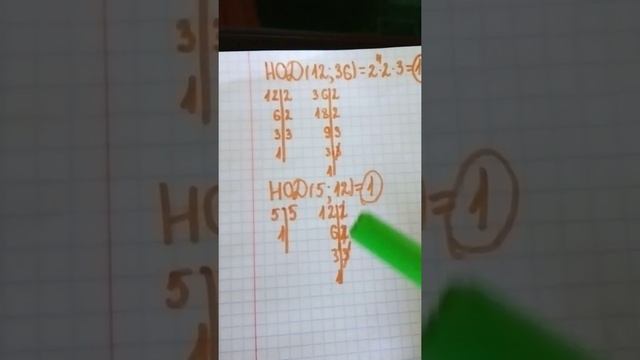 НОД(12;36)=2·2·3=
12|2 36|2
6|2 18|2
3|3 9|3
1 3|3
1
НОД(5;12)=1
5|5 12|2
1 6|2
3|3
1